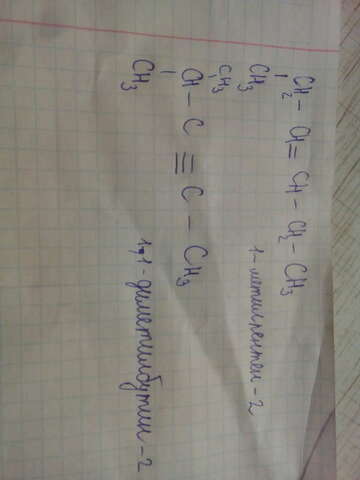 CH₂ – CH = CH – CH₂ – CH₃
CH₃ 1-метилпентен-2
CH₃
CH – C ≡ C – CH₃
CH₃ 1,1-диметилбутин-2